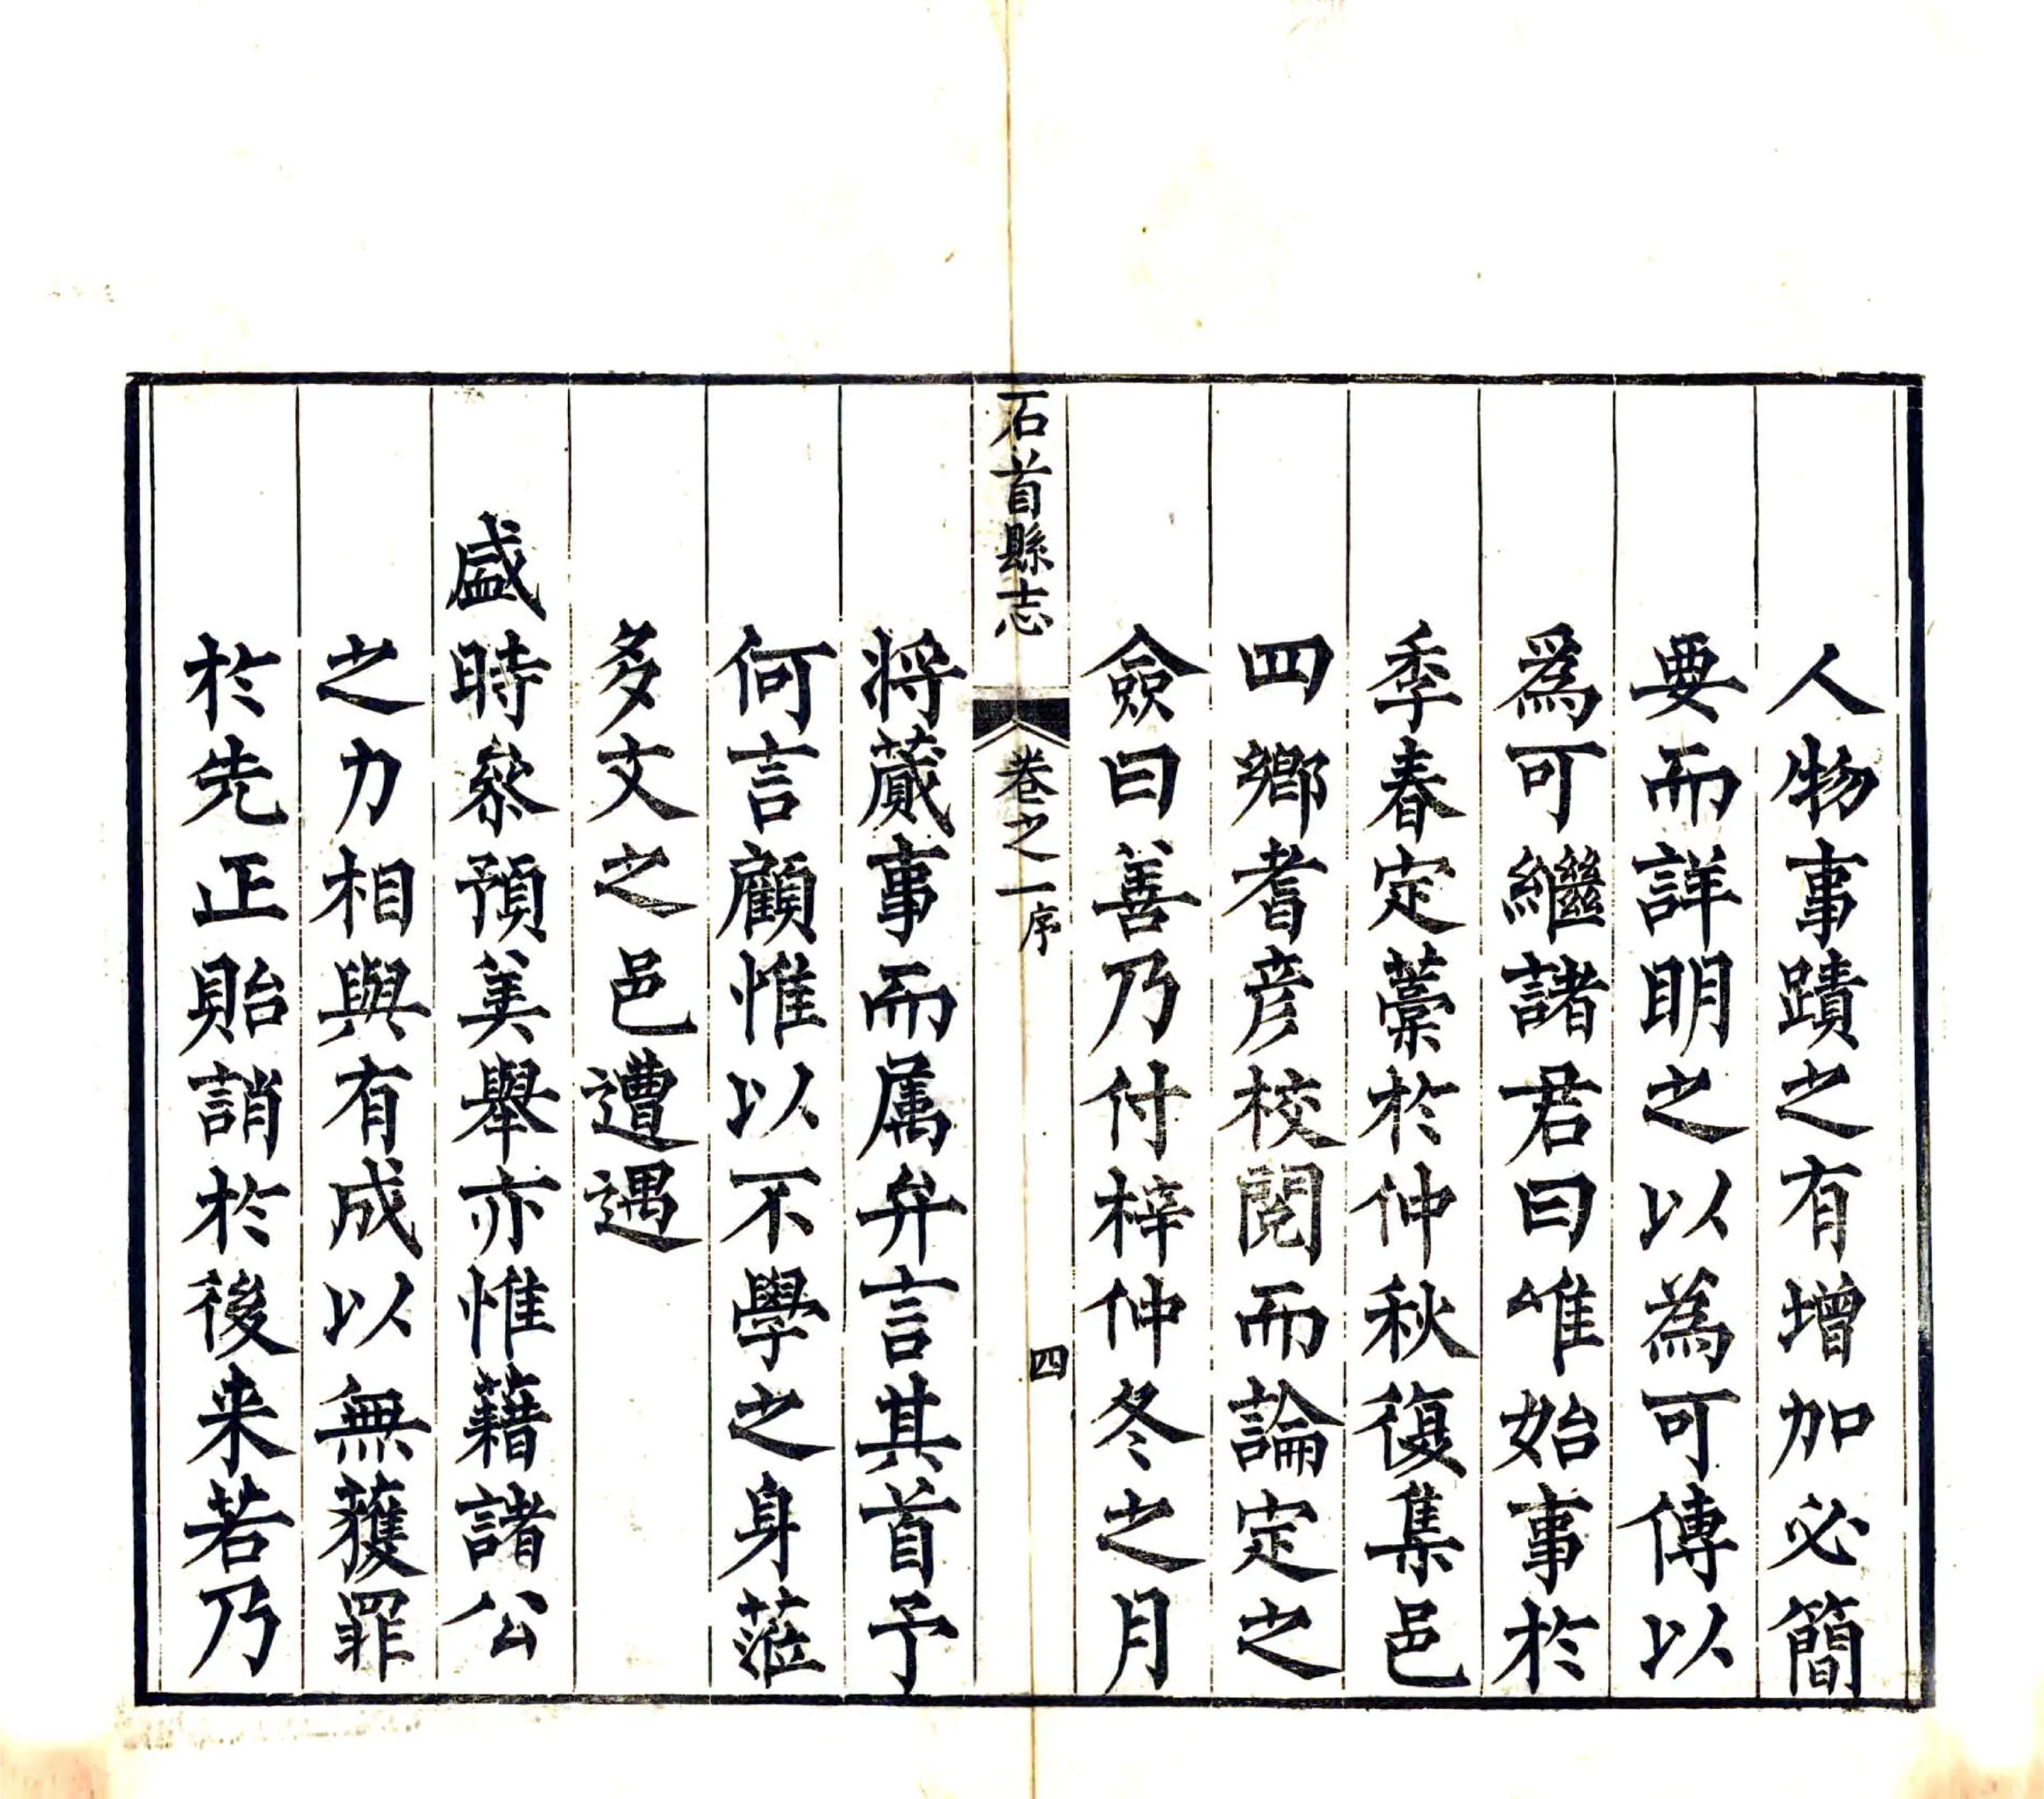 人物事蹟之有增加必簡
要而詳明之以為可傳以
爲可繼諸君曰唯始事於
季春定藁於仲秋復集邑
四鄉耆彦校閱而論定之
僉曰善乃付梓仲冬之月
石首縣志
卷之一序
四
将蕆事而属弁言其首予
何言顧惟以不學之身蒞
多文之邑遭遇
盛時叅預美舉亦惟藉諸公
之力相與有成以無獲罪
於先正貽誚於後来若乃